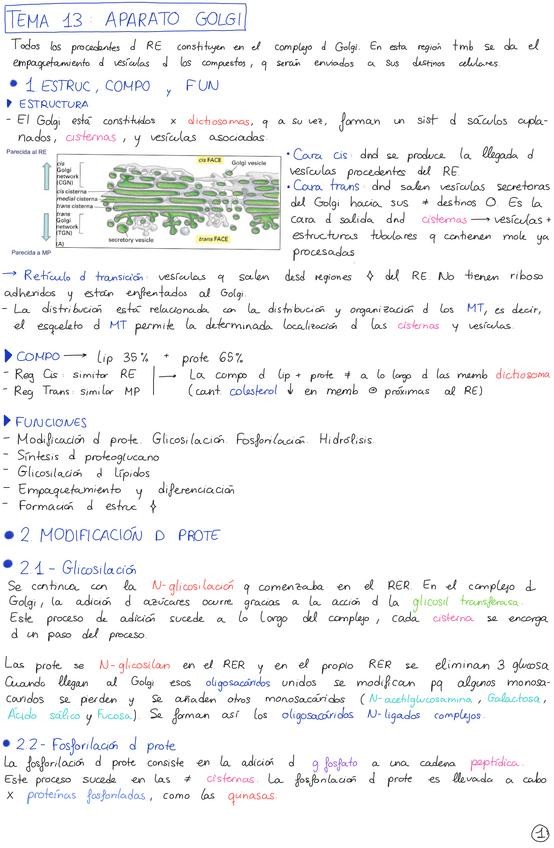 TEMA 13: APARATO GOLGI
Todos los procedentes d RE constituyen en el complejo d Golgi. En esta región tmb se da el
empaquetamiento d vesículas d los compuestos, q serán enviados a sus destinos celulares.
• 1 ESTRUC, COMPO y FUN
ESTRUCTURA
- El Golgi está constituidos x dictiosomas, q a su vez, forman un sist d sáculos apla-
nados, cisternas, y vesículas asociadas.
Parecida al RE
cis
Golgi
network
(CGN)
cis cisterna
medial cisterna
trans cisterna
trans
Golgi
network
(TGN)
(A)
Parecida a MP
cis FACE
Golgi vesicle
secretory vesicle
trans FACE
• Cara cis: dnd se produce la llegada d
vesículas procedentes del RE.
• Cara trans: dnd salen vesículas secretoras
del Golgi hacia sus ≠ destinos O. Es la
cara d salida dnd cisternas → vesículas +
estructuras tubulares q contienen mole ya
procesadas
→ Retículo d transición: vesículas q salen desd regiones ✧ del RE. No tienen riboso
adheridos y están enfrentados al Golgi.
- La distribución está relacionada con la distribución y organización d los MT, es decir,
el esqueleto d MT permite la determinada localización d las cisternas y vesículas.
COMPO → lip 35% + prote 65%
- Reg Cis: similar RE
- Reg Trans: similar MP
→ La compo d lip + prote ≠ a lo largo d las memb dictiosoma
(cant. colesterol ↓ en memb ⊕ próximas al RE)
FUNCIONES
- Modificación d prote. Glicosilación. Fosforilación. Hidrólisis.
- Síntesis d proteoglucano
- Glicosilación d Lípidos
- Empaquetamiento y diferenciación
- Formación d estruc ✧
• 2 MODIFICACIÓN D PROTE
• 2.1- Glicosilación
Se continua con la N-glicosilación q comenzaba en el RER. En el complejo d
Golgi, la adición d azúcares ocurre gracias a la acción d la glicosil transferasa.
Este proceso de adición sucede a lo largo del complejo, cada cisterna se encarga
d un paso del proceso.
Las prote se N-glicosilan en el RER y en el propio RER se eliminan 3 glucosa
Cuando llegan al Golgi esos oligosacáridos unidos se modifican pq algunos monosa-
caridos se pierden y se añaden otros monosacáridos (N-acetilglucosamina, Galactosa,
Ácido siálico y Fucosa). Se forman así los oligosacáridos N-ligados complejos.
• 2.2- Fosforilación d prote
La fosforilación d prote consiste en la adición d g.fosfato a una cadena peptídica.
Este proceso sucede en las ≠ cisternas. La fosforilación d prote es llevada a cabo
x proteínas fosforiladas, como las quinasas.
1